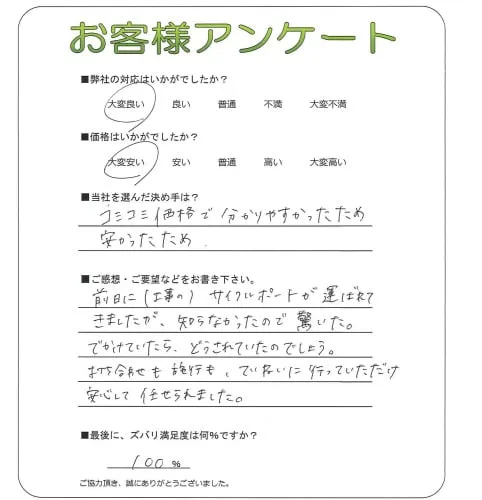 お客様アンケート
■弊社の対応はいかがでしたか？
大変良い 良い 普通 不満 大変不満
■価格はいかがでしたか？
大変安い 安い 普通 高い 大変高い
■当社を選んだ決め手は？
コミコミ価格で分かりやすかったため
安かったため.
■ご感想・ご要望などをお書き下さい。
前日に(工事の)サイクルポートが運ばれて
きましたが、知らなかったので驚いた。
でかけていたら、どうされていたのでしょう。
打ち合わせも施行も、ていねいに行っていただけ
安心して任せられました。
■最後に、ズバリ満足度は何%ですか？
100 %
ご協力頂き、誠にありがとうございました。